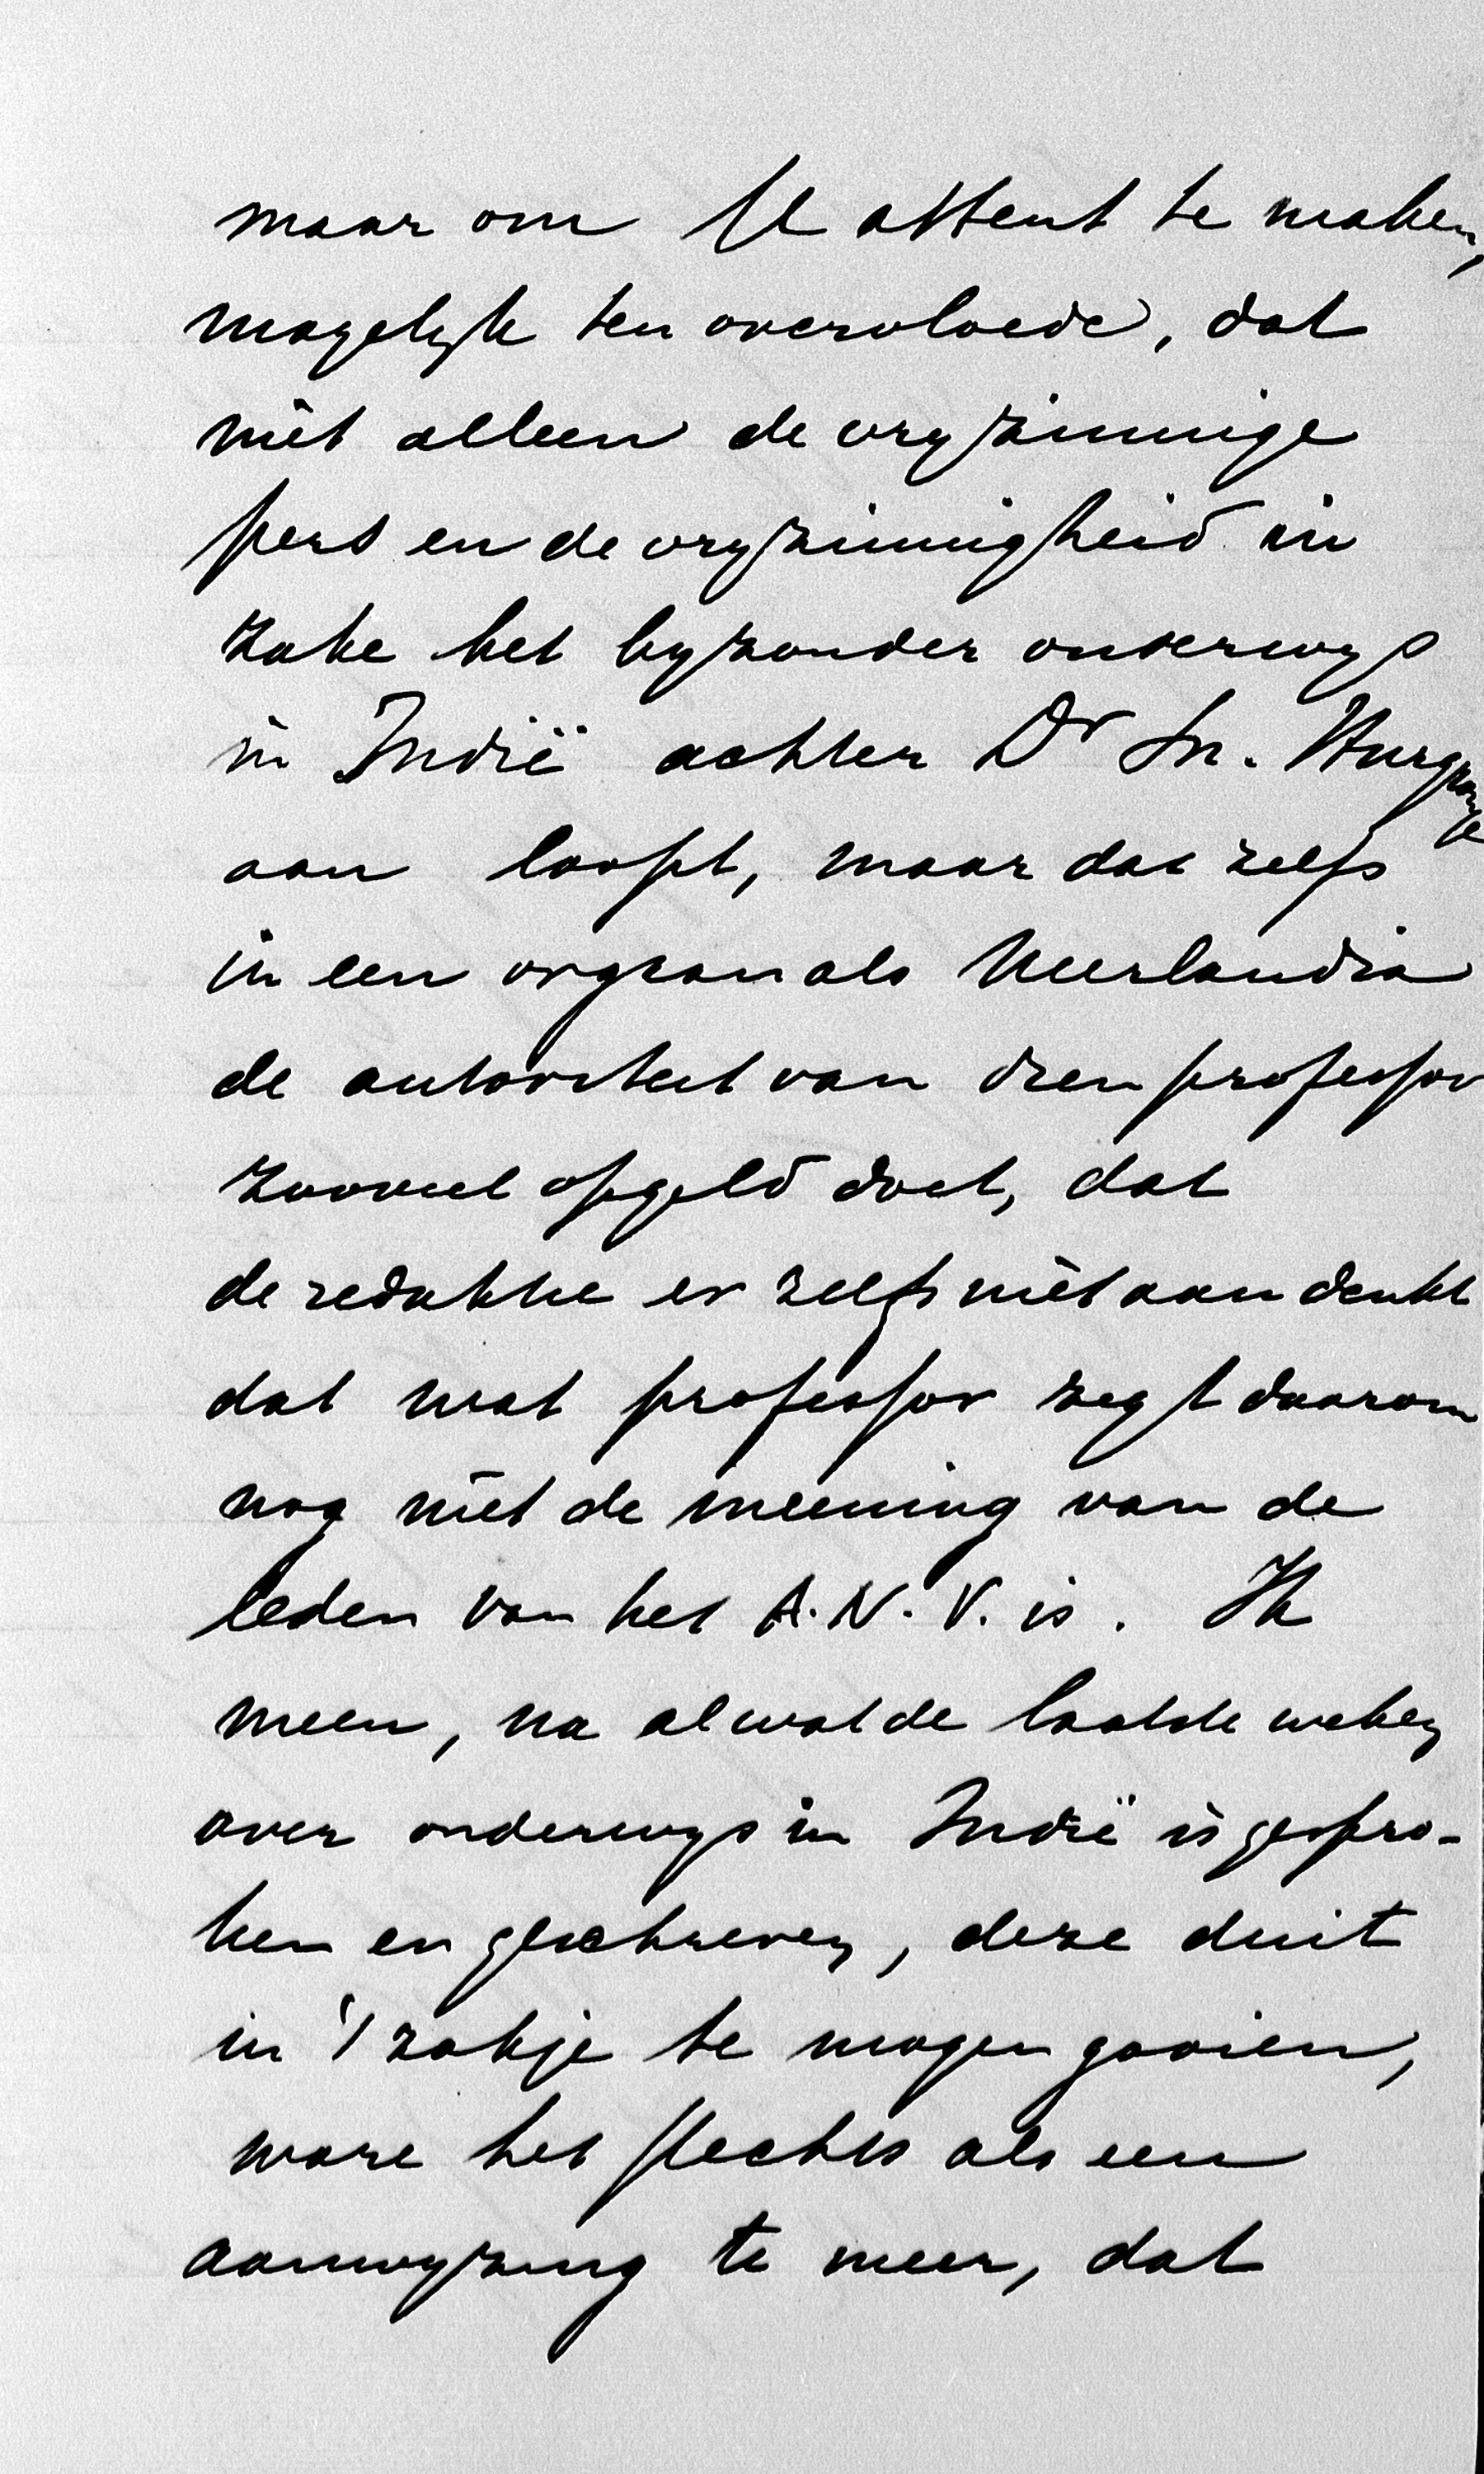 maar om U attent te maken,
mogelijk ten overvloede, dat
niet alleen de vrijzinnige
pers en de vrijzinnigheid in
zake het bijzonder onderwijs
in Indië achter Dr Sn. Hurgronje
aan loopt, maar dat zelfs
in een orgaan als Neerlandia
de autoriteit van dien professor
zooveel opgeld doet, dat
de redaktie er zelfs niet aan denkt
dat wat professor zegt daarom
nog niet de meening van de
leden van het A.N.V. is. Ik
meen, na al wat de laatste weken
over onderwijs in Indië is gespro-
ken en geschreven, deze duit
in 't zakje te mogen gooien,
ware het slechts als een
aanwijzing te meer, dat